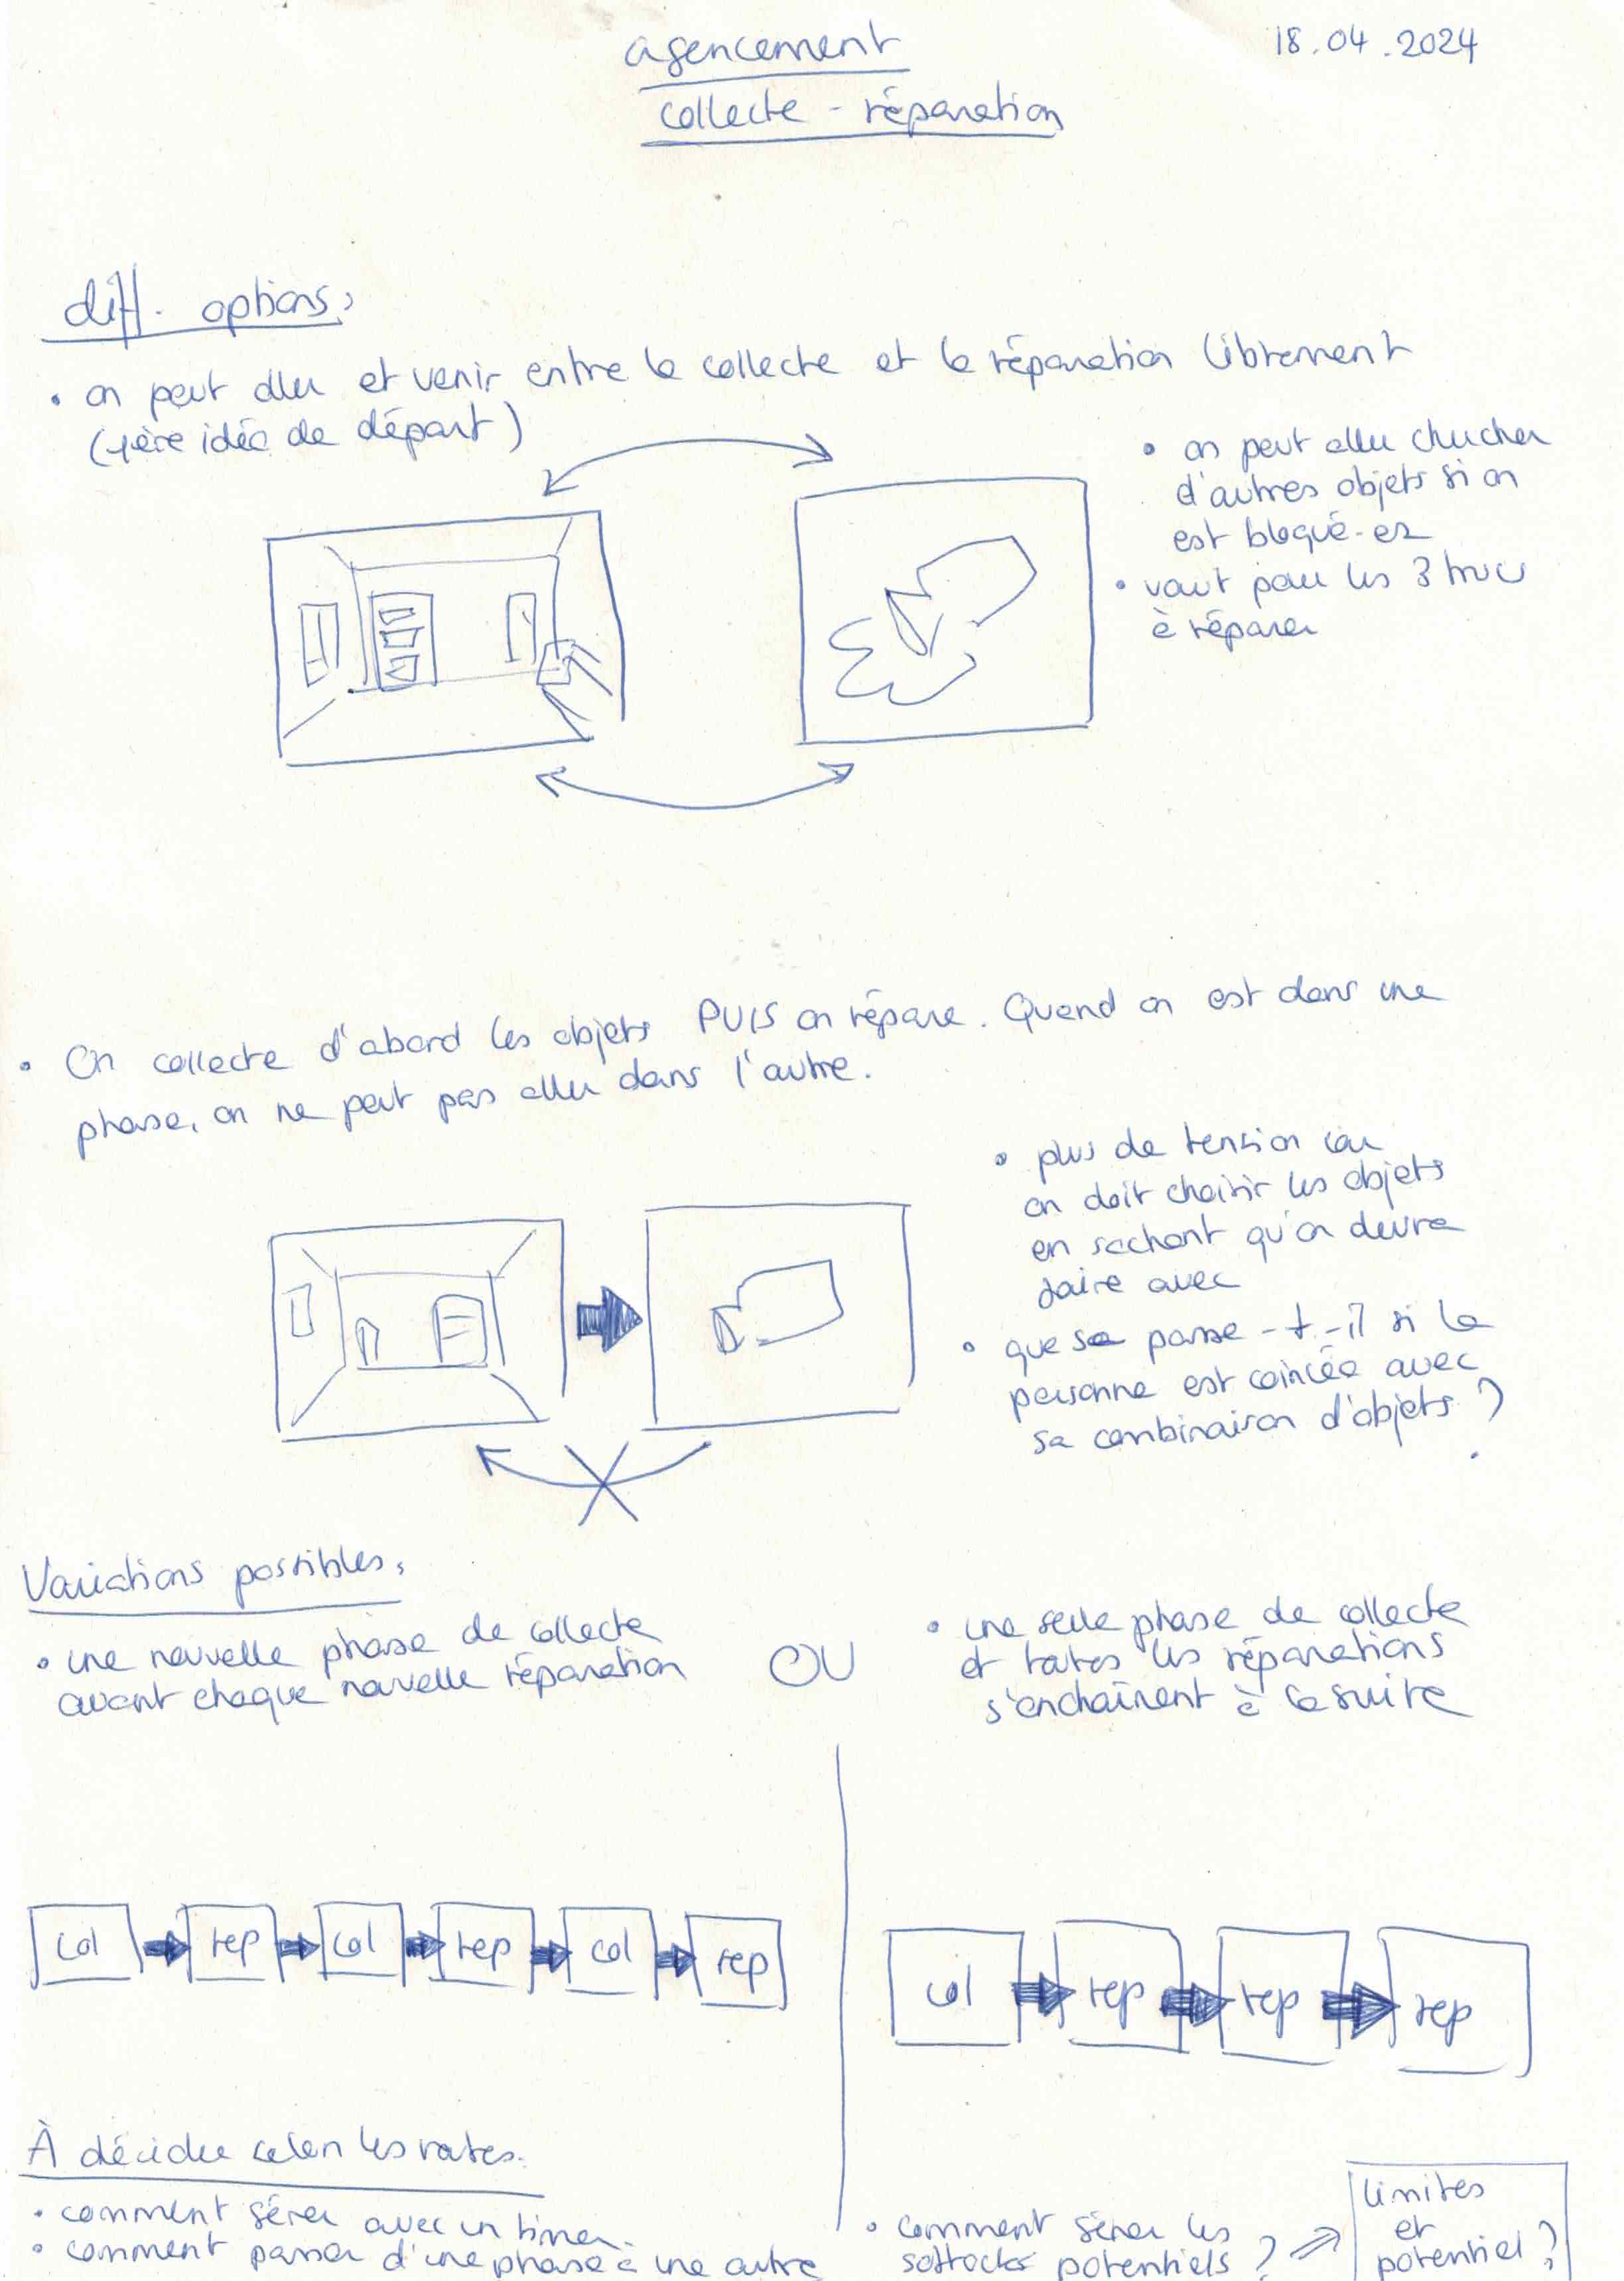 agencement
18.04.2024
collecte - réparation
diff. options:
• on peut aller et venir entre la collecte et la réparation librement
(1ère idée de départ)
• on peut aller chercher
d'autres objets si on
est bloqué-ex
• vaut pour les 3 trucs
à réparer
• On collecte d'abord les objets PUIS on répare. Quand on est dans une
phase, on ne peut pas aller dans l'autre.
• plus de tension car
on doit choisir les objets
en sachant qu'on devra
faire avec
• que se passe-t-il si la
personne est coincée avec
sa combinaison d'objets ?
Variations possibles:
• une nouvelle phase de collecte
avant chaque nouvelle réparation
OU
• une seule phase de collecte
et toutes les réparations
s'enchaînent à la suite
col rep col rep col rep
col rep rep rep
À décider selon les
• comment gérer avec un timer
• comment passer d'une phase à une autre
• comment gérer les
softlocks potentiels ?
limites
et
potentiel ?